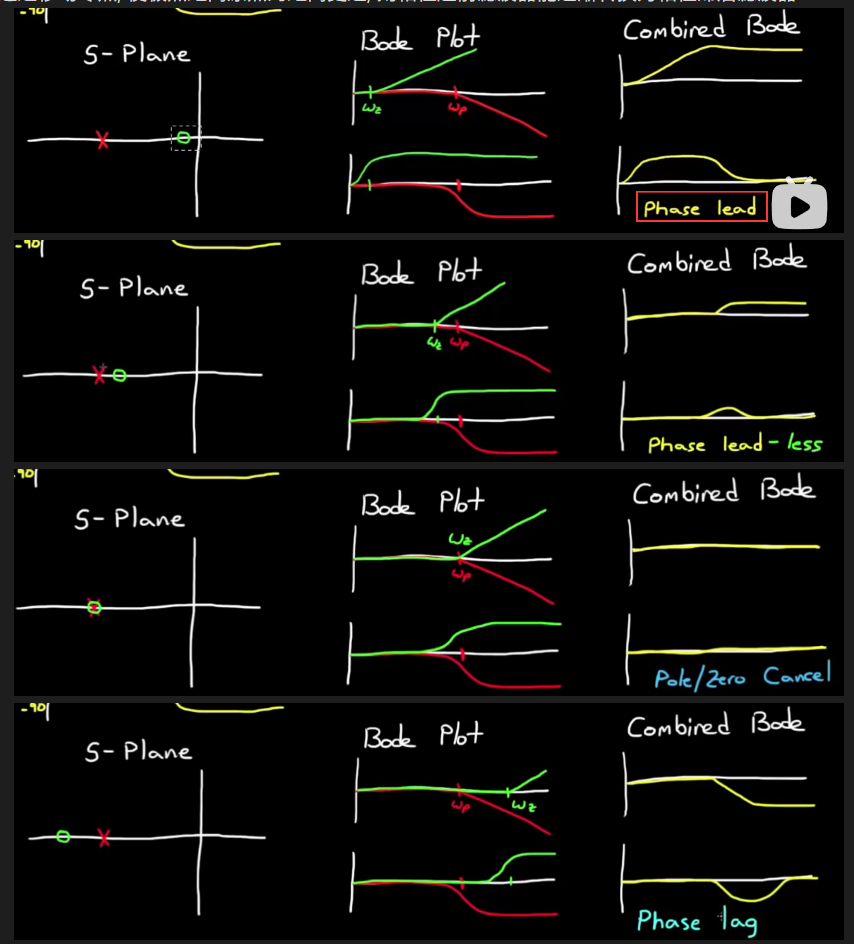 -90
S-Plane
Bode Plot
Combined Bode
ωz
ωp
Phase lead
-90
S-Plane
Bode Plot
Combined Bode
ωz ωp
Phase lead-less
90
S-Plane
Bode Plot
Combined Bode
ωz
ωp
Pole/Zero Cancel
-90
S-Plane
Bode Plot
Combined Bode
ωp
ωz
Phase lag